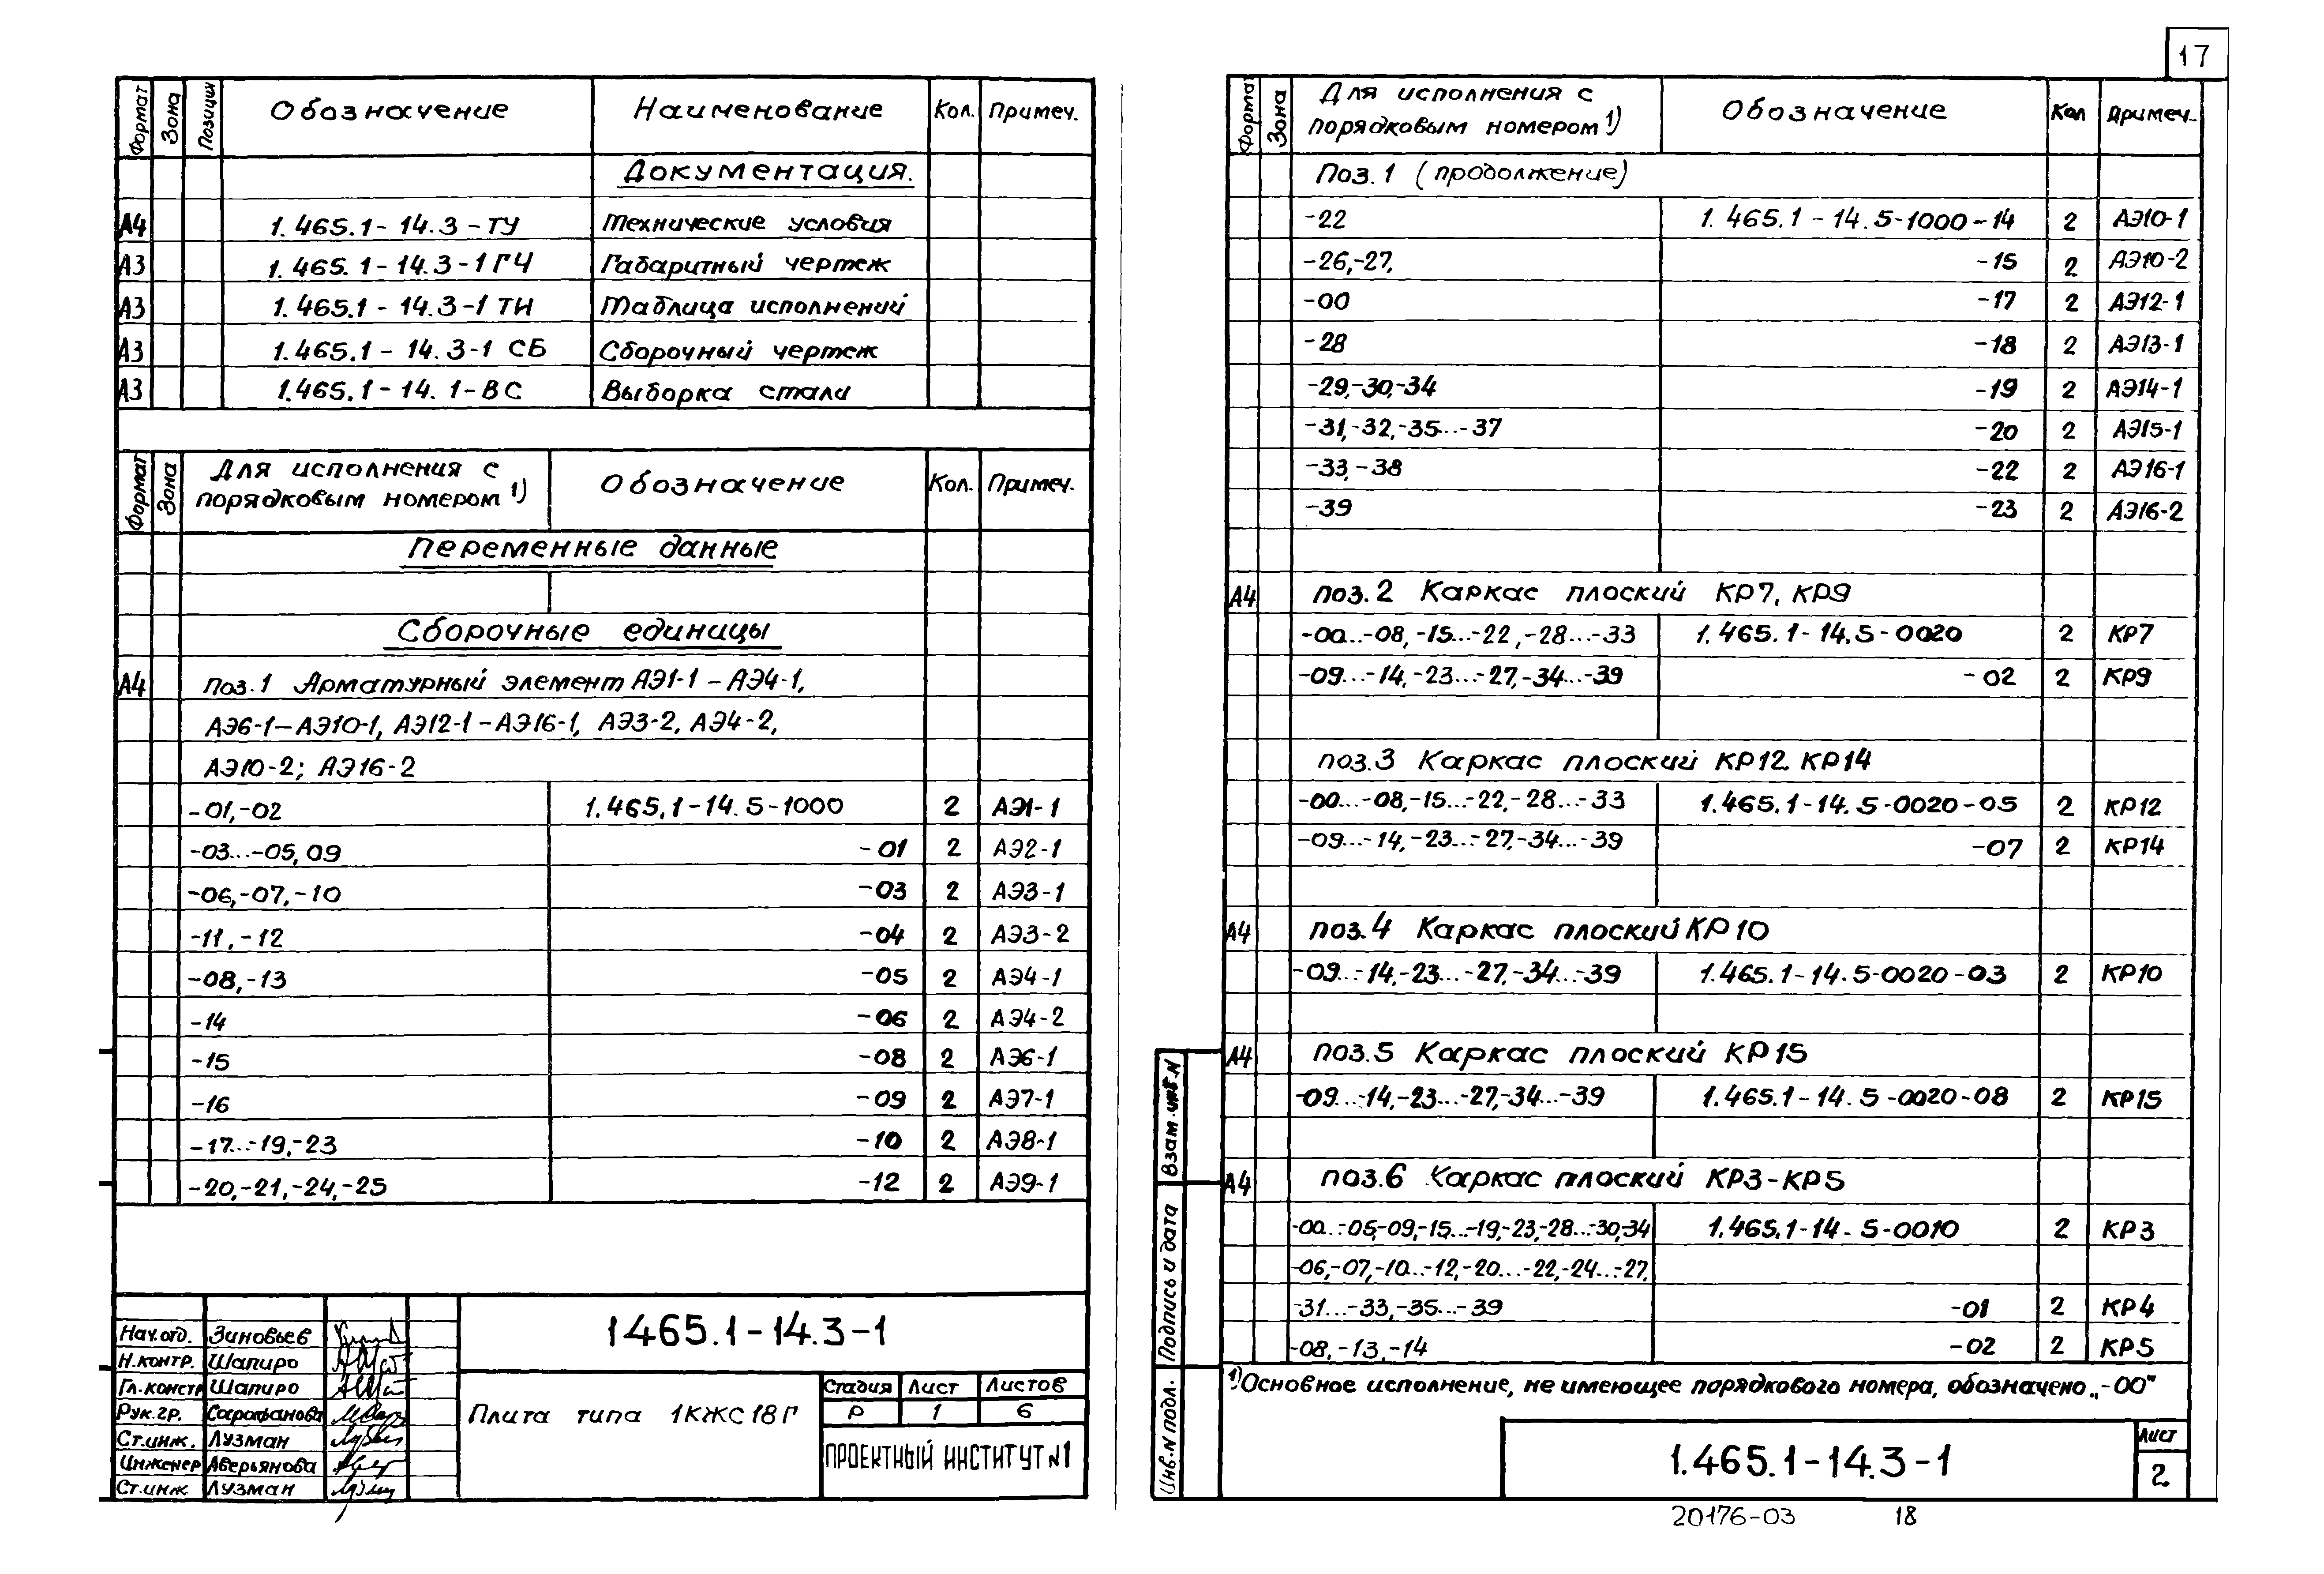 17
Формат Зона Позиция Обозначение Наименование Кол. Примеч.
Документация.
А4 1.465.1-14.3-ТУ Технические условия
А3 1.465.1-14.3-1ГЧ Габаритный чертеж
А3 1.465.1-14.3-1ТИ Таблица исполнений
А3 1.465.1-14.3-1 СБ Сборочный чертеж
А3 1.465.1-14.1-ВС Выборка стали
Формат Зона Для исполнения с порядковым номером 1) Обозначение Кол. Примеч.
Переменные данные
Сборочные единицы
А4 поз.1 Арматурный элемент АЭ1-1 – АЭ4-1,
АЭ6-1–АЭ10-1, АЭ12-1–АЭ16-1, АЭ3-2, АЭ4-2,
АЭ10-2; АЭ16-2
-01,-02 1.465.1-14.5-1000 2 АЭ1-1
-03...-05,09 -01 2 АЭ2-1
-06,-07,-10 -03 2 АЭ3-1
-11,-12 -04 2 АЭ3-2
-08,-13 -05 2 АЭ4-1
-14 -06 2 АЭ4-2
-15 -08 2 АЭ6-1
-16 -09 2 АЭ7-1
-17...-19,-23 -10 2 АЭ8-1
-20,-21,-24,-25 -12 2 АЭ9-1
1465.1-14.3-1
Нач.отд. Зиновьев
Н.контр. Шапиро
Гл.констр Шапиро
Рук.гр. Сарафанова
Ст.инж. Лузман
Инженер Аверьянова
Ст.инж Лузман
Плита типа 1КЖС18Г
Стадия Лист Листов
Р 1 6
ПРОЕКТНЫЙ ИНСТИТУТ N1
Формат Зона Для исполнения с порядковым номером 1) Обозначение Кол Примеч.
Поз.1 (продолжение)
-22 1.465.1-14.5-1000-14 2 АЭ10-1
-26,-27, -15 2 АЭ10-2
-00 -17 2 АЭ12-1
-28 -18 2 АЭ13-1
-29,-30,-34 -19 2 АЭ14-1
-31,-32,-35...-37 -20 2 АЭ15-1
-33,-38 -22 2 АЭ16-1
-39 -23 2 АЭ16-2
А4 поз.2 Каркас плоский КР7, КР9
-00...-08,-15...-22,-28...-33 1.465.1-14.5-0020 2 КР7
-09...-14,-23...-27,-34...-39 -02 2 КР9
поз.3 Каркас плоский КР12. КР14
-00...-08,-15...-22,-28...-33 1.465.1-14.5-0020-05 2 КР12
-09...-14,-23...-27,-34...-39 -07 2 КР14
А4 поз.4 Каркас плоский КР10
-09...-14,-23...-27,-34...-39 1.465.1-14.5-0020-03 2 КР10
А4 поз.5 Каркас плоский КР15
-09...-14,-23...-27,-34...-39 1.465.1-14.5-0020-08 2 КР15
А4 поз.6 Каркас плоский КР3-КР5
-00...-05,-09,-15...-19,-23,-28...-30,-34 1.465.1-14.5-0010 2 КР3
-06,-07,-10...-12,-20...-22,-24...-27,
-31...-33,-35...-39 -01 2 КР4
-08,-13,-14 -02 2 КР5
1)Основное исполнение, не имеющее порядкового номера, обозначено „-00"
1.465.1-14.3-1
Лист
2
Взам.инв.N
Подпись и дата
Инв.N подл.
20176-03 18